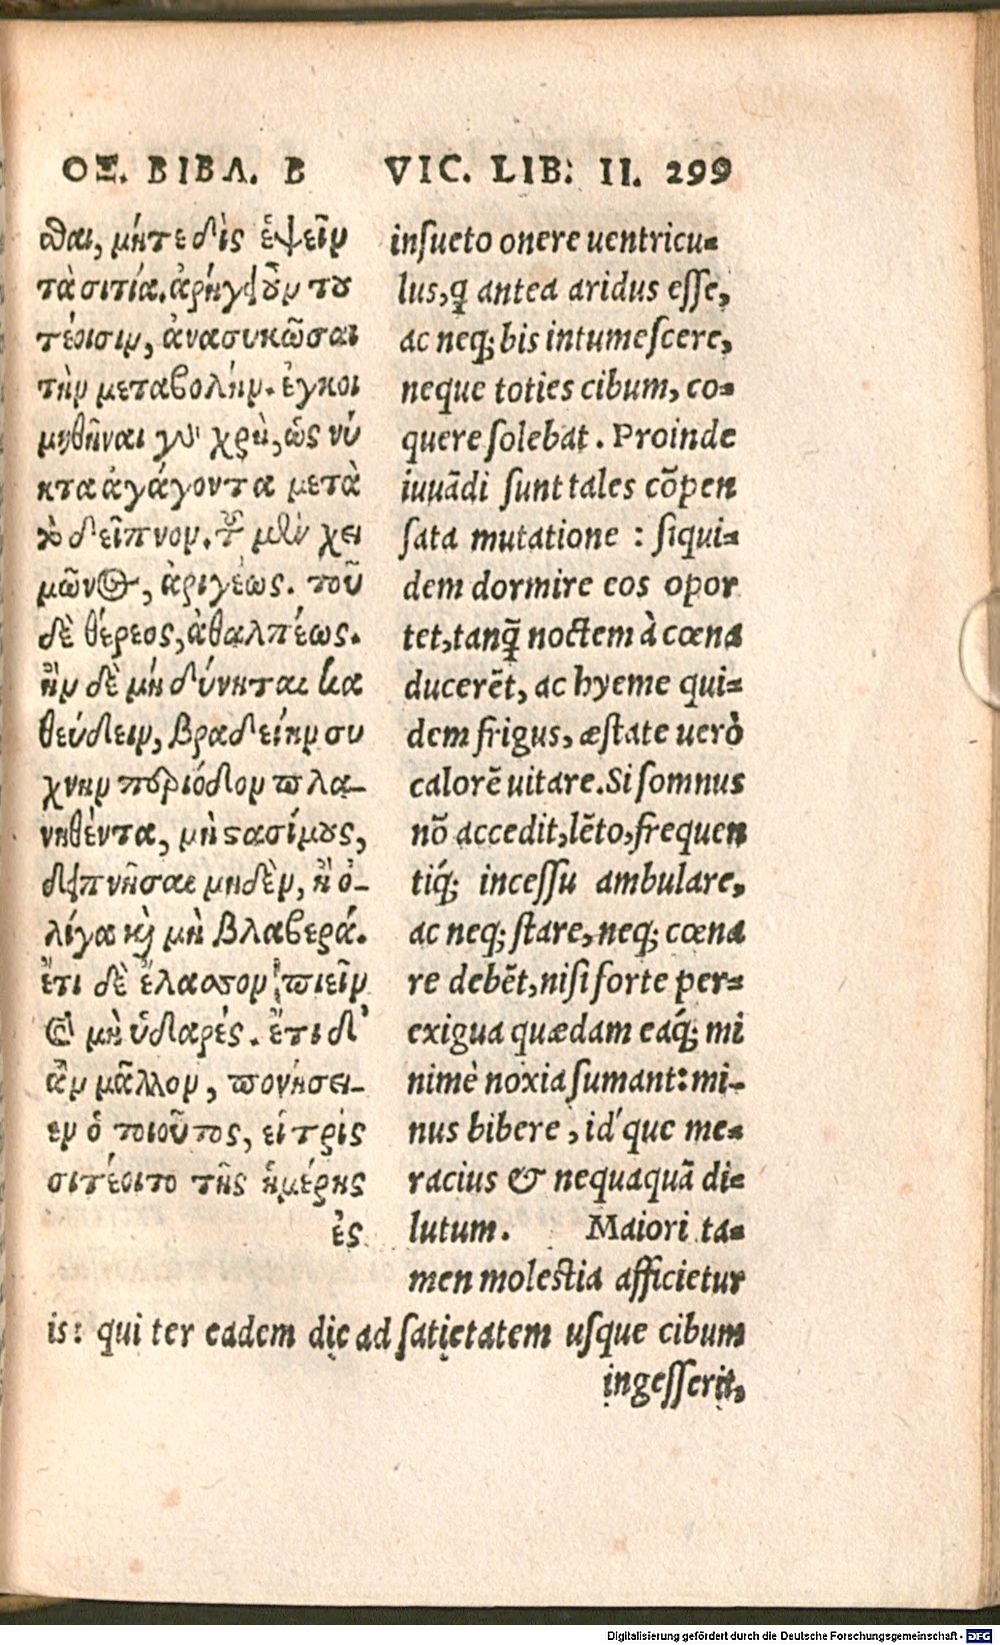 ΟΞ. ΒΙΒΛ. Β
σθαι, μήτε δὶς ἑψεῖν
τὰ σιτία. ἀρήγειν οὖν του
τέοισιν, ἀνασηκῶσαι
τὴν μεταβολήν. ἐγκοι
μηθῆναι γὰρ χρὴ, ὡς νύ
κτα ἀγάγοντα μετὰ
τὸ δεῖπνον. τοῦ μὲν χει
μῶνος, ἀριγέως. τοῦ
δὲ θέρεος, ἀθαλπέως.
ἢν δὲ μὴ δύνηται κα
θεύδειν, βραδείην συ
χνὴν περίοδον πλα-
νηθέντα, μὴ στασίμους,
δειπνῆσαι μηδὲν, ἢ ὀ-
λίγα καὶ μὴ βλαβερά.
ἔτι δὲ ἔλασσον πιεῖν
καὶ μὴ ὑδαρές. ἔτι δ'
ἂν μᾶλλον, πονήσει-
εν ὁ τοιοῦτος, εἰ τρὶς
σιτέοιτο τῆς ἡμέρης
ἐς
VIC. LIB: II. 299
insueto onere uentricu-
lus, q̃ antea aridus esse,
ac neq; bis intumescere,
neque toties cibum, co-
quere solebat. Proinde
iuuãdi sunt tales cõpen
sata mutatione : siqui-
dem dormire eos opor
tet, tanq̃ noctem à cœna
ducerẽt, ac hyeme qui-
dem frigus, æstate uerò
calorẽ uitare. Si somnus
nõ accedit, lẽto, frequen
tiq́; incessu ambulare,
ac neq; stare, neq; cœna
re debẽt, nisi forte per-
exigua quædam eaq́; mi
nimè noxia sumant: mi-
nus bibere, id'que me-
racius & nequaquã di-
lutum. Maiori ta-
men molestia afficietur
is: qui ter eadem die ad satietatem usque cibum
ingesserit,
Digitalisierung gefördert durch die Deutsche Forschungsgemeinschaft - DFG